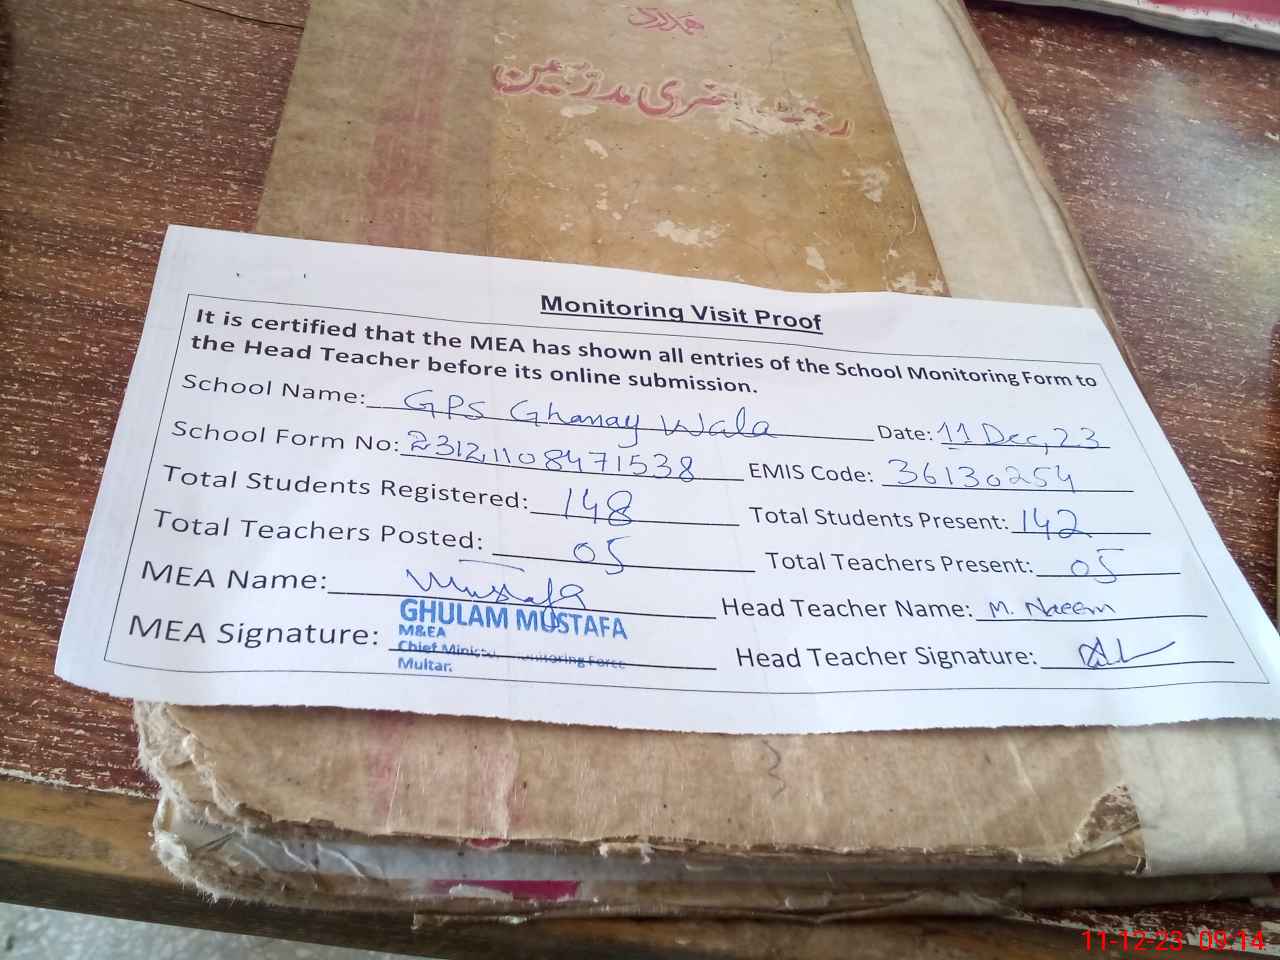 ہمدرد
رجسٹر حاضری مدرسین
Monitoring Visit Proof
It is certified that the MEA has shown all entries of the School Monitoring Form to
the Head Teacher before its online submission.
School Name: GPS Ghanay Wala Date: 11 Dec, 23
School Form No: 231211108471538 EMIS Code: 36130254
Total Students Registered: 148 Total Students Present: 142
Total Teachers Posted: 05 Total Teachers Present: 05
MEA Name: Mustafa Head Teacher Name: M. Naeem
GHULAM MUSTAFA
M&EA
MEA Signature: Head Teacher Signature:
Chief Monitoring Force
Multan
11-12-23 09:14